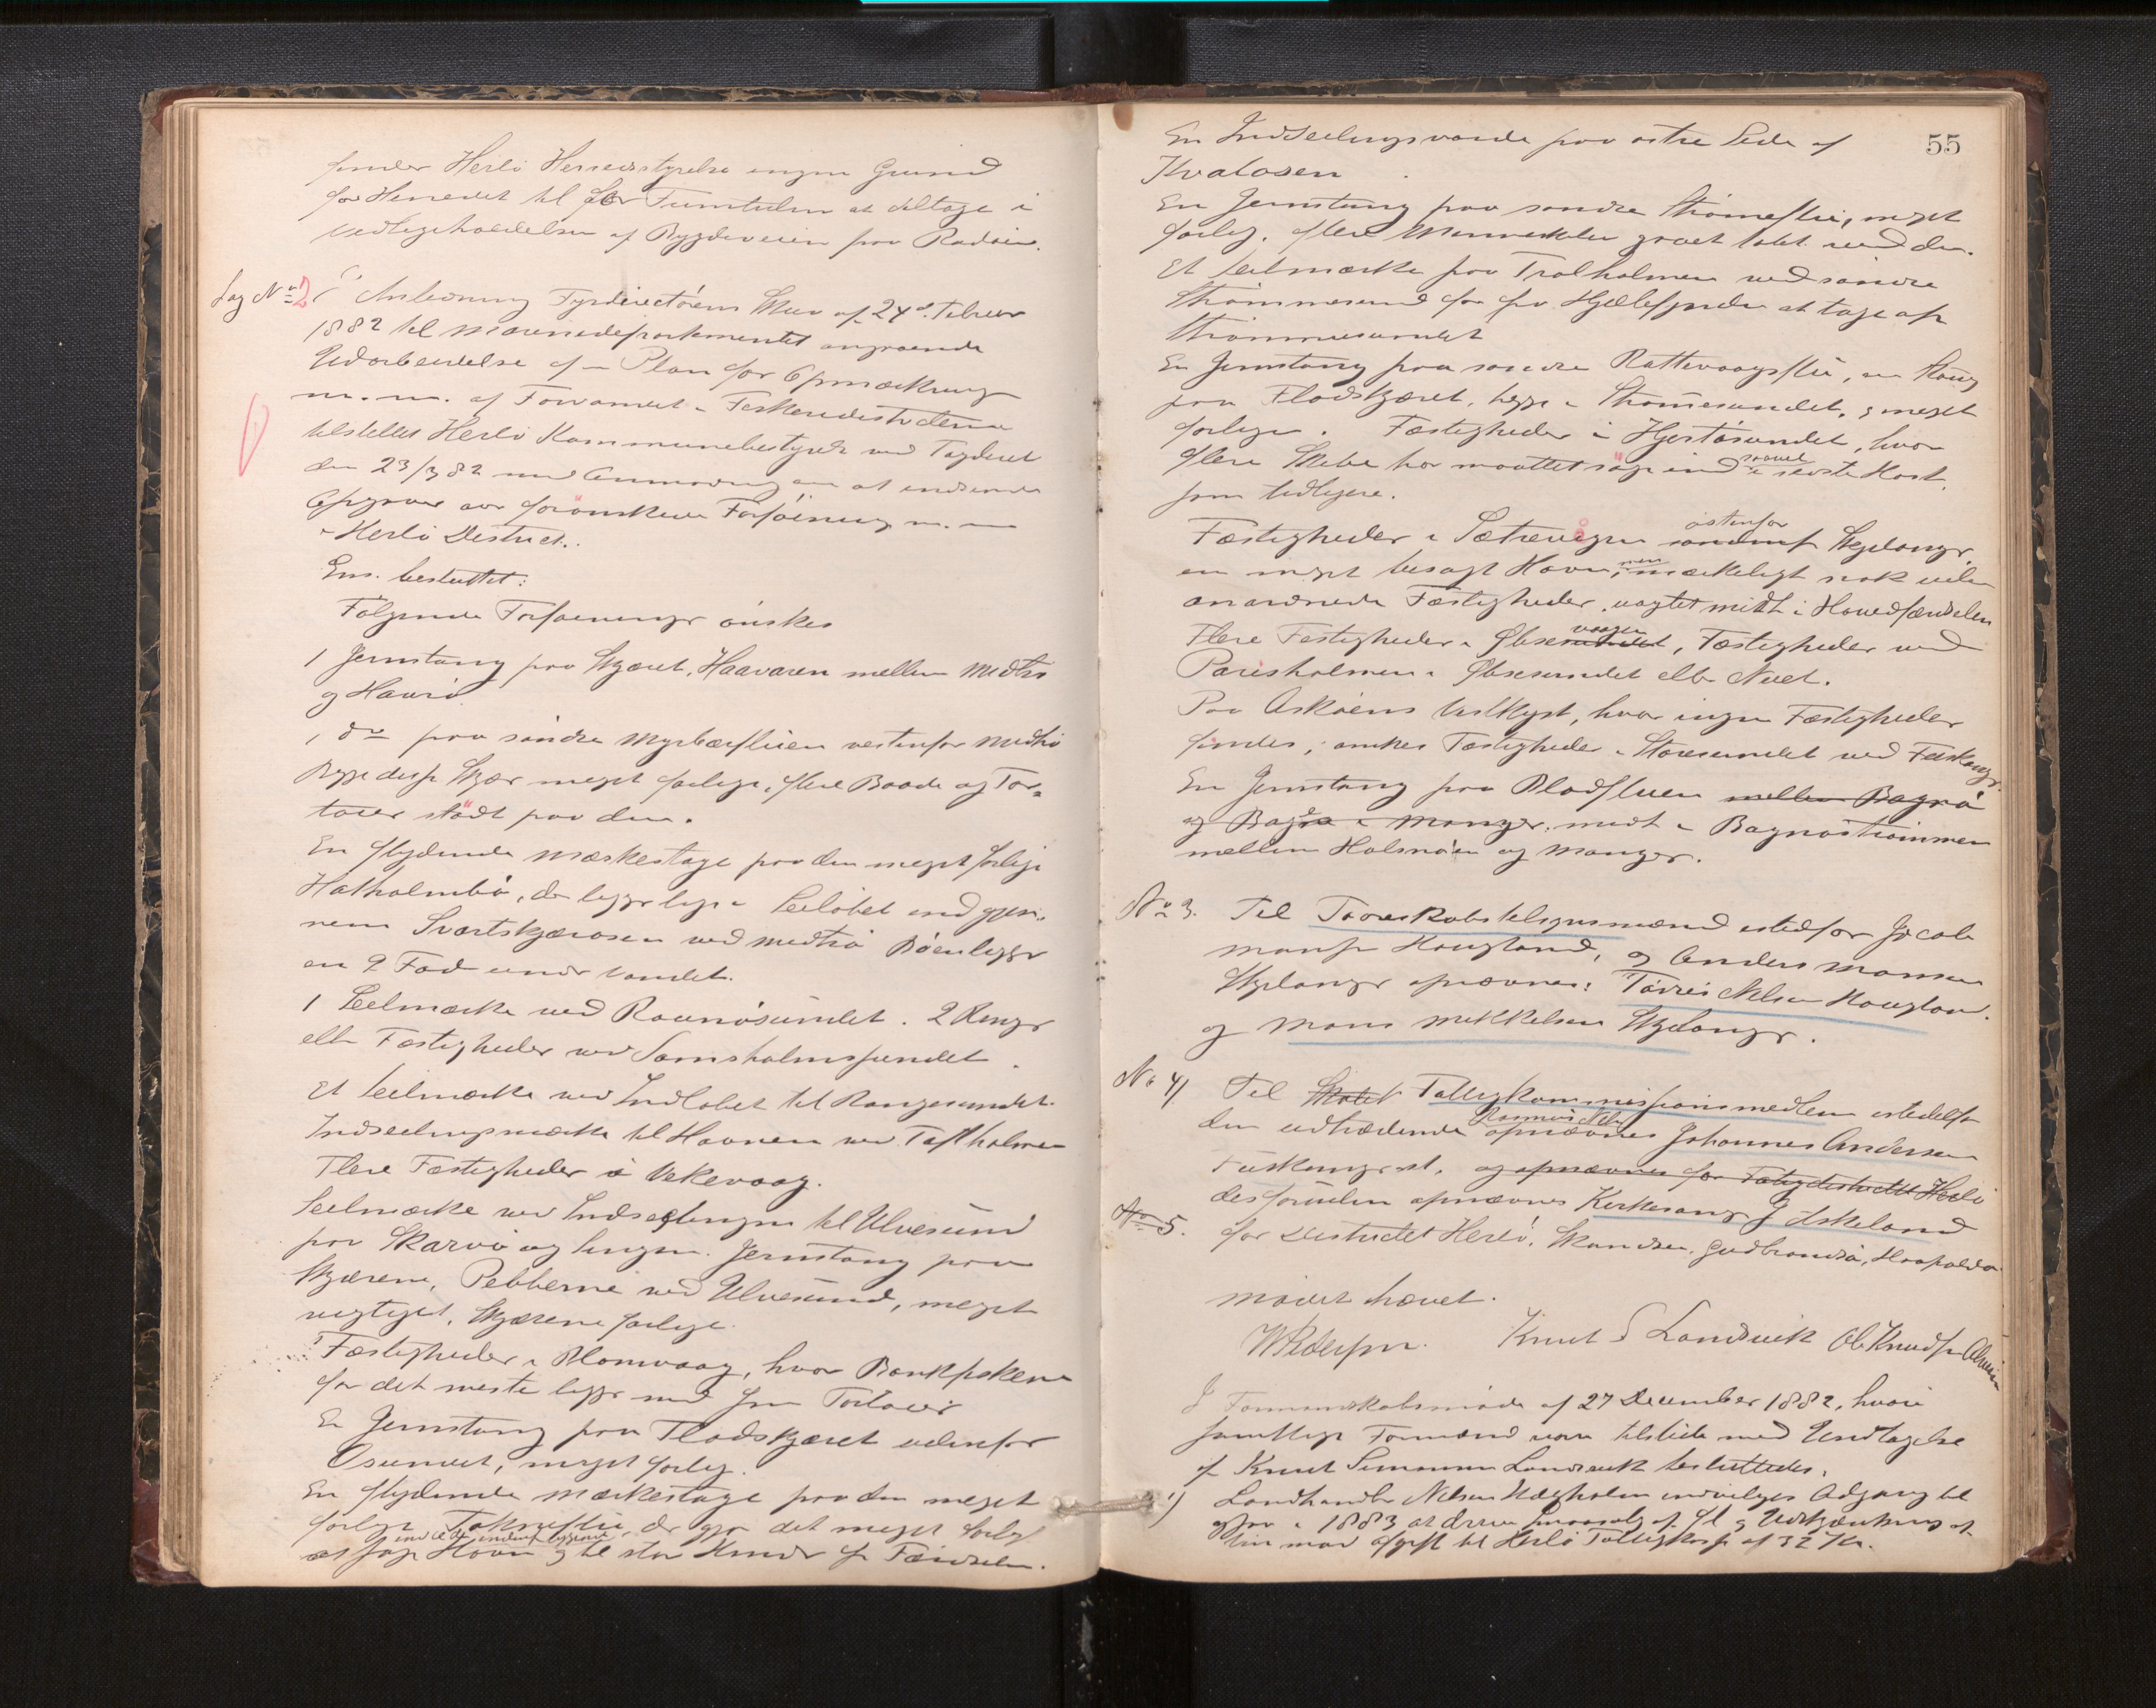 finder Herlö Herredsstyrelse ingen Grund
for Herredet til for Fremtiden at deltage i
Vedligeholdelsen af Bygdeveien paa Radöen.
Sag No 2 I Anledning Fyrdirectörens Skriv af 24de Februar
1882 til Marinedepartementet angaaende
Udarbeidelse af en Plan for Opmærkning
m.m. af Farvandet i Fiskeridistrikterne
tilstillet Herlö Kommunebestyrelse ved Fogderiet
den 23/3 82 med Anmodning om at indsende
Opgaver over forönskede Forföininger m.m
i Herlö District.
Ens. besluttet:
Fölgende Forföeninger önskes
1 Jernstang paa Skjæret Haavaren mellem Medtö
og Havrö
1 do paa söndre Myrbærfluen vestenfor Medtö
Begge disse Skjær meget farlige, flere Baade og Far-
töier stödt paa dem.
En flydende Mærkestage paa den meget farlige
Hatholmbö, der ligger lige i Seilöbet ind gjen-
nem Svartskjærosen ved Medtö Böen ligger
en 9 Fod under Vandet.
1 Seilmærke ved Ravnösundet. 2 Ringe
eller Fæstigheder ved Samsholmsundet
Et Seilmærke ved Indlöbet til Rongesundet.
Indseilingsmærke til Havnen ved Toftholmen
Flere Fæstigheder i Vekevaag.
Seilmærke ved Indseglingen til Ulvesund
paa Skarvö og Lyngen. Jernstang paa
Skjærene, Pebberne ved Ulvesund, meget
vigtigst, Skjærene farlige.
Fæstigheder i Blomvaag, hvor Bankfiskere
for det meste ligger med sine Fartöier
En Jernstang paa Fladskjæret udenfor
Osundet, meget farlig.
En flydende Mærkestage paa den meget
farlige Toknefluen, der gjör det meget farligt
ind til den indenfor liggende
at söge Havn og til stor Hinder for Færdselen.
55
En Indseilingsvarde paa östre Side af
Kvalosen
En Jernstang paa söndre Strömeflu, meget
farlig. flere Menneskeliv gaaet tabt ved den.
Et Seilmærke paa Tralholmen ved söndre
Strömmesund for fra Hjeltefjorden at tage af
Strömmesundet
En Jernstang paa söndre Rattevaagsflu, en Stang
paa Flodskjæret, begge i Strömesundet, og meget
farlige. Fæstigheder i Hjertösundet, hvor
flere Skibe har maattet söge ind saavel i sidste Höst
som tidligere.
Fæstigheder i Sætrevågen östenfor söndenfor Skjelanger,
en meget besögt Havn, men mærkeligt nok uden
anordnede Fæstigheder, uagtet midt i Hovedfærdselen
Flere Fæstigheder i Øbsevaagen, Fæstigheder ved
Parisholmen i Øbsesundet eller Nuet.
Paa Asköens Vestkyst, hvor ingen Fæstigheder
findes, önskes Fæstigheder i Storesundet ved Fuskanger.
En Jernstang paa Bladfluen mellem Bagnö
og Bagnö i Manger. midt i Bagnöströmmen
mellem Holsnöen og Manger.
No 3. Til Formandskabs tilsynsmænd istedfor Jacob
Mons Hougland, og Anders Monsen
Skjelanger opnævnes: Törres Nilsen Hougland.
og Mons Mikkelsen Skjelanger.
No 4/ Til Skolek Fattigkommissionsmedlem istedetfor
den udtrædende Rasmus Nils opnævnes Johannes Andersen
Fuskanger st. og opnævnes for Fattigdistriktet Herlö
desforuden opnævnes Kirkesanger J Eskeland
No 5. for Distriktet Herlö, Skandsen, Gudbrandsö,
Mödet hævet.
W Pedersen. Knut S Landsvik Ole Knudsen
I Formandskabsmöde af 27 December 1882, hvori
samtlige Formænd var tilstede med Undtagelse
af Knut Simonsen Landsvik besluttedes.
1) Landhandler Nilsen indvilges Adgang til
i 1883 at drive Smaasalg af Øl og Udskjænkning af
Vin mod Afgift til Herlö Fattigkasse af 32 Kr.